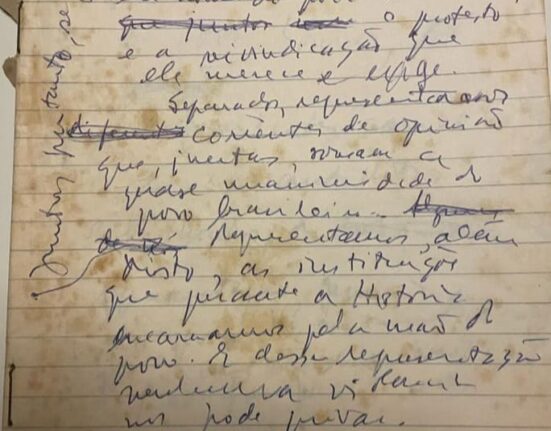 que juntos o protesto
e a reivindicação que
ele merece e exige.
Separados, representamos
diferentes correntes de opinião
que, juntas, somam a
quase unanimidade do
povo brasileiro.
Representamos, além
disto, as instituições
que perante a História
encarnamos pela mão do
povo. E dessa representação
nenhuma violência
nos pode privar.
Juntos, portanto, se